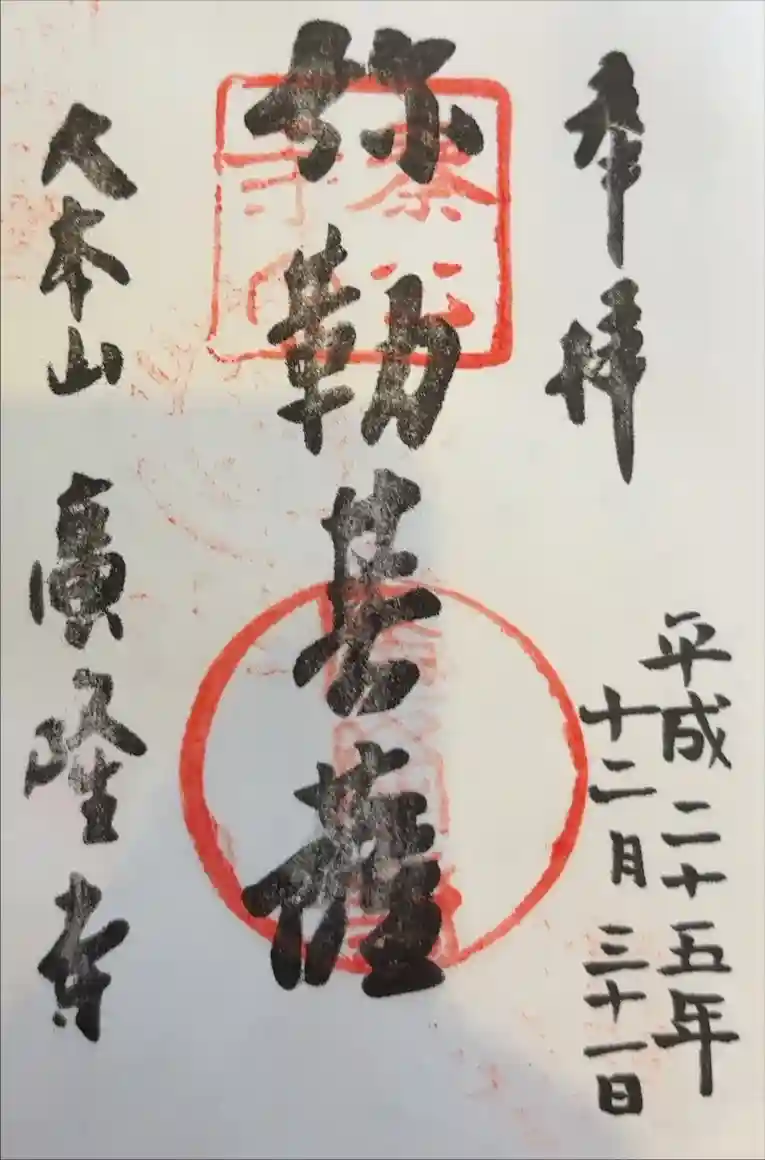 奉拝
平成二十五年
十二月三十一日
弥勒菩薩
大本山 廣隆寺